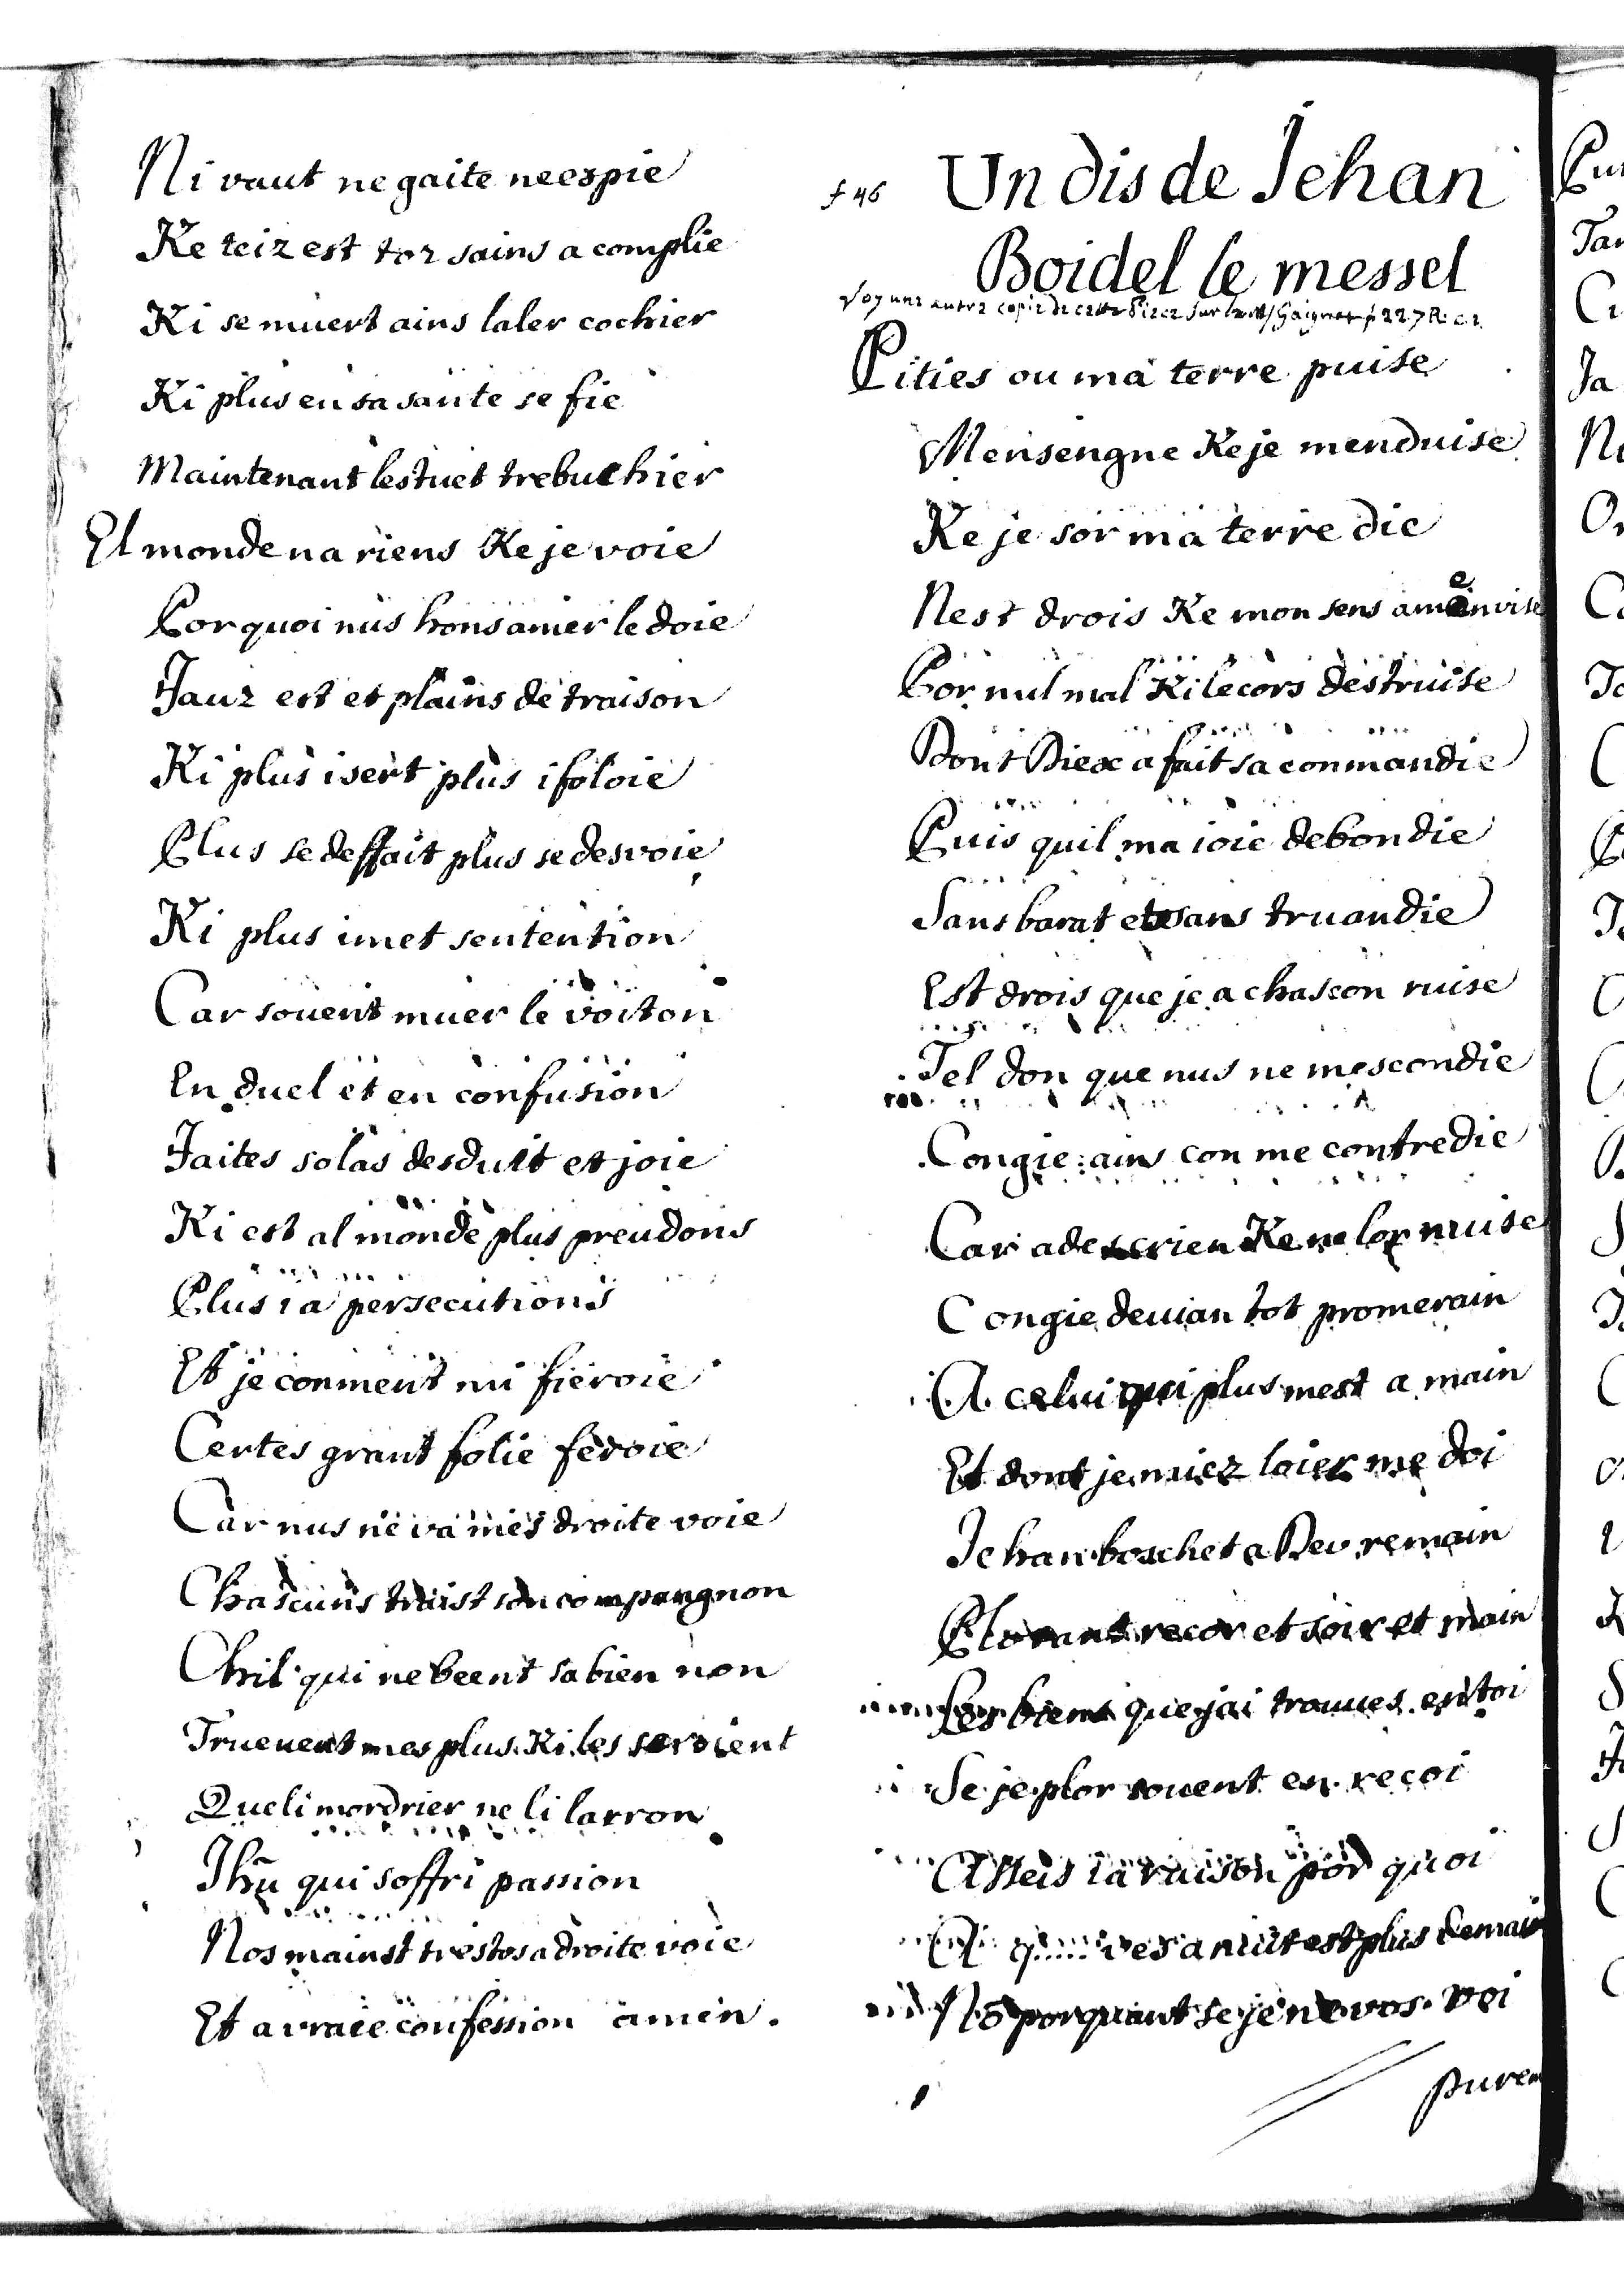 Ni vaut ne gaite ne espie
Ke teiz est toz sains a complie
Ki se muert ains laler cochier
Ki plus en sa sante se fie
Maintenant lestuet trebuchier
El monde na riens Ke je voie
Por quoi nus hons amer le doie
Fauz est et plains de traison
Ki plus i sert plus i foloie
Plus se deffait plus se desvoie
Ki plus i met sentention
Car souent muer le voit on
En duel et en confusion
Faites solas desduit et joie
Ki est al monde plus preudons
Plus i a persecutions
Et je conment mi fieroie
Certes grant folie feroie
Car nus ne va mes droite voie
Chascuns traist son compangnon
Chil qui ne beent sa bien non
Truevent mes plus Ki les servient
Que li mordrier ne li larron
Jhũ qui soffri passion
Nos mainst trestos a droite voie
Et a vraie confession amen.
f 46 Un dis de Jehan
Boidel le messel
Voy une autre copie de cette Piece sur le Mss Gaignat f 227 R. c 2
Pities ou ma terre puise
Mensengne Ke je menduise
Ke je sor ma terre die
Nest drois Ke mon sens amenvise
Por nul mal Ki le cors destruise
Dont Diex a fait sa conmandie
Puis quil ma joie debondie
Sans barat et sans truandie
Est drois que je a chascon ruise
Tel don que nus ne mescondie
Congie ains con me contredie
Car ades crien Ke ne lor nuise
Congie demant tot promerain
A celui qui plus mest a main
Et dont je miez loier me doi
Jehan boschet a Deu remain
Plorant recor et soir et main
Les biens que jai trouves en toi
Se je plor souent en recoi
Asseis i a raison por quoi
ves a nuit est plus demain
No porquant se je ne vos voi
puren